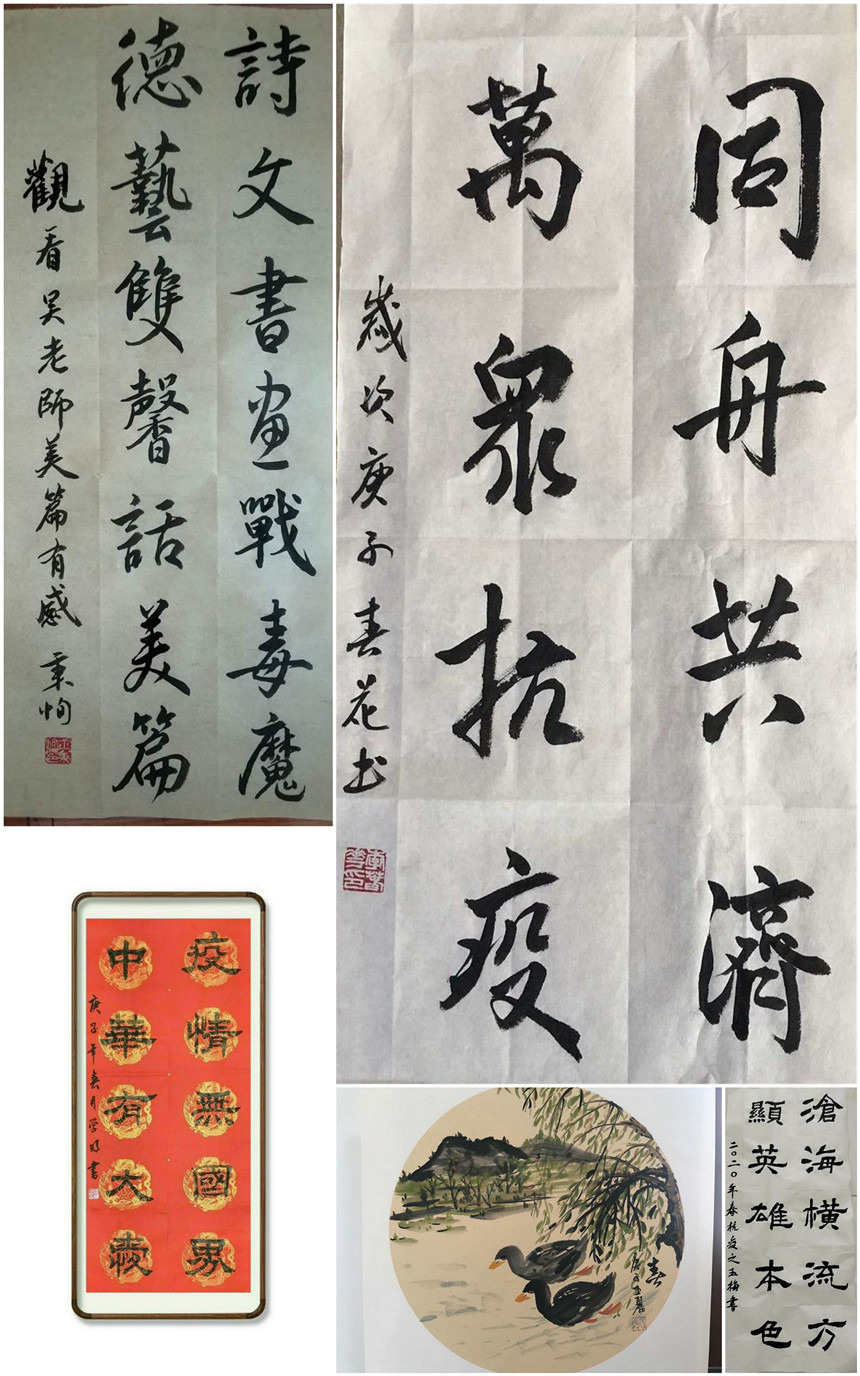 詩文書画戰毒魔
德藝雙馨話美篇
觀看吴老師美篇有感
同舟共濟
萬眾抗疫
歲次庚子春花书
疫情無國界
中華有大愛
庚子年春月學明書
春
滄海橫流方
顯英雄本色
二〇二〇年春抗疫之玉梅書